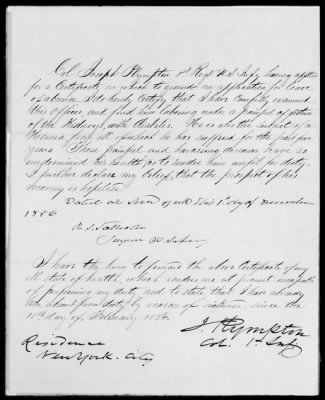 Col. Joseph Plympton 1st Regt U.S. Infy having applied
for a Certificate on which to ground an application for leave
of absence I do hereby Certify that I have Carefully examined
this officer and find him labouring under a painful affection
of the Kidneys and Bladder. He is also the subject of a
Hernia, from all of which he has suffered for the past
years. These painful and harassing diseases have so
undermined his health as to render him unfit for duty.
I further declare my belief that the prospect of his
recovery is hopeless.
Dated at this 1st day of December
1856
Surgeon
I have the honor to forward the above Certificate of my
ill state of health, which renders me at present incapable
of performing my duty, and to state that I have already
been absent from duty by reason of sickness since the
18th day of February 1856
J. Plympton
Col. 1st Infy
Residence
New York City